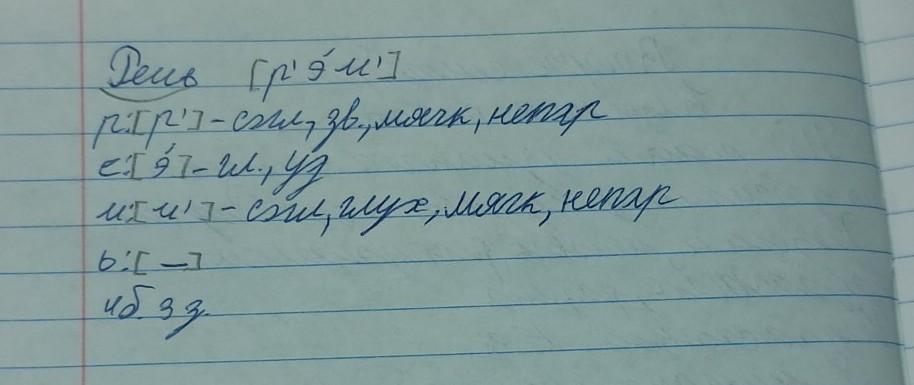 Речь [р' э́ ч']
р:[р'] - согл, зв., мягк, непар
е:[э́] - гл., уд
ч:[ч'] - согл, глух, мягк, непар
ь:[—]
4б. 3 з.